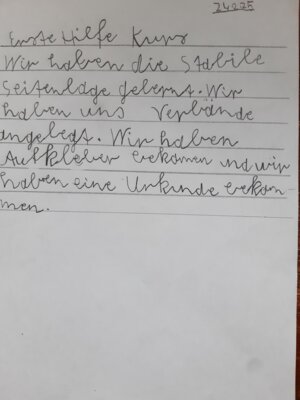 24.2.25
Erste Hilfe Kurs
Wir haben die Stabile
Seitenlage gelernt. Wir
haben uns Verbände
angelegt. Wir haben
Aufkleber bekomen und wir
haben eine Urkunde bekom-
men.